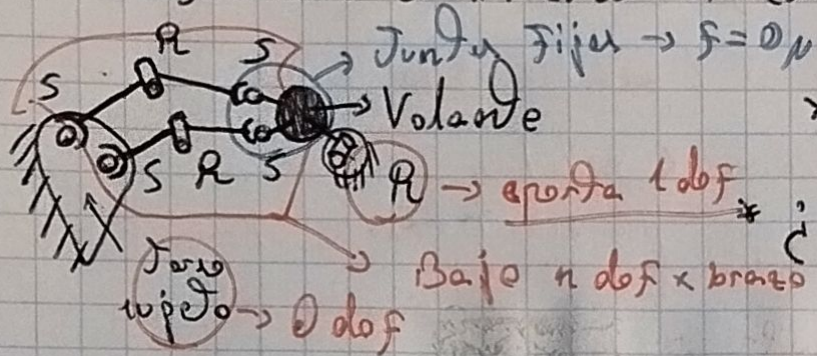 R S → Juntas Fijas → f = 0
S → Volante
S R S R → aporta 1 dof *
Torso
sujeto → 0 dof
Bajo n dof x brazo